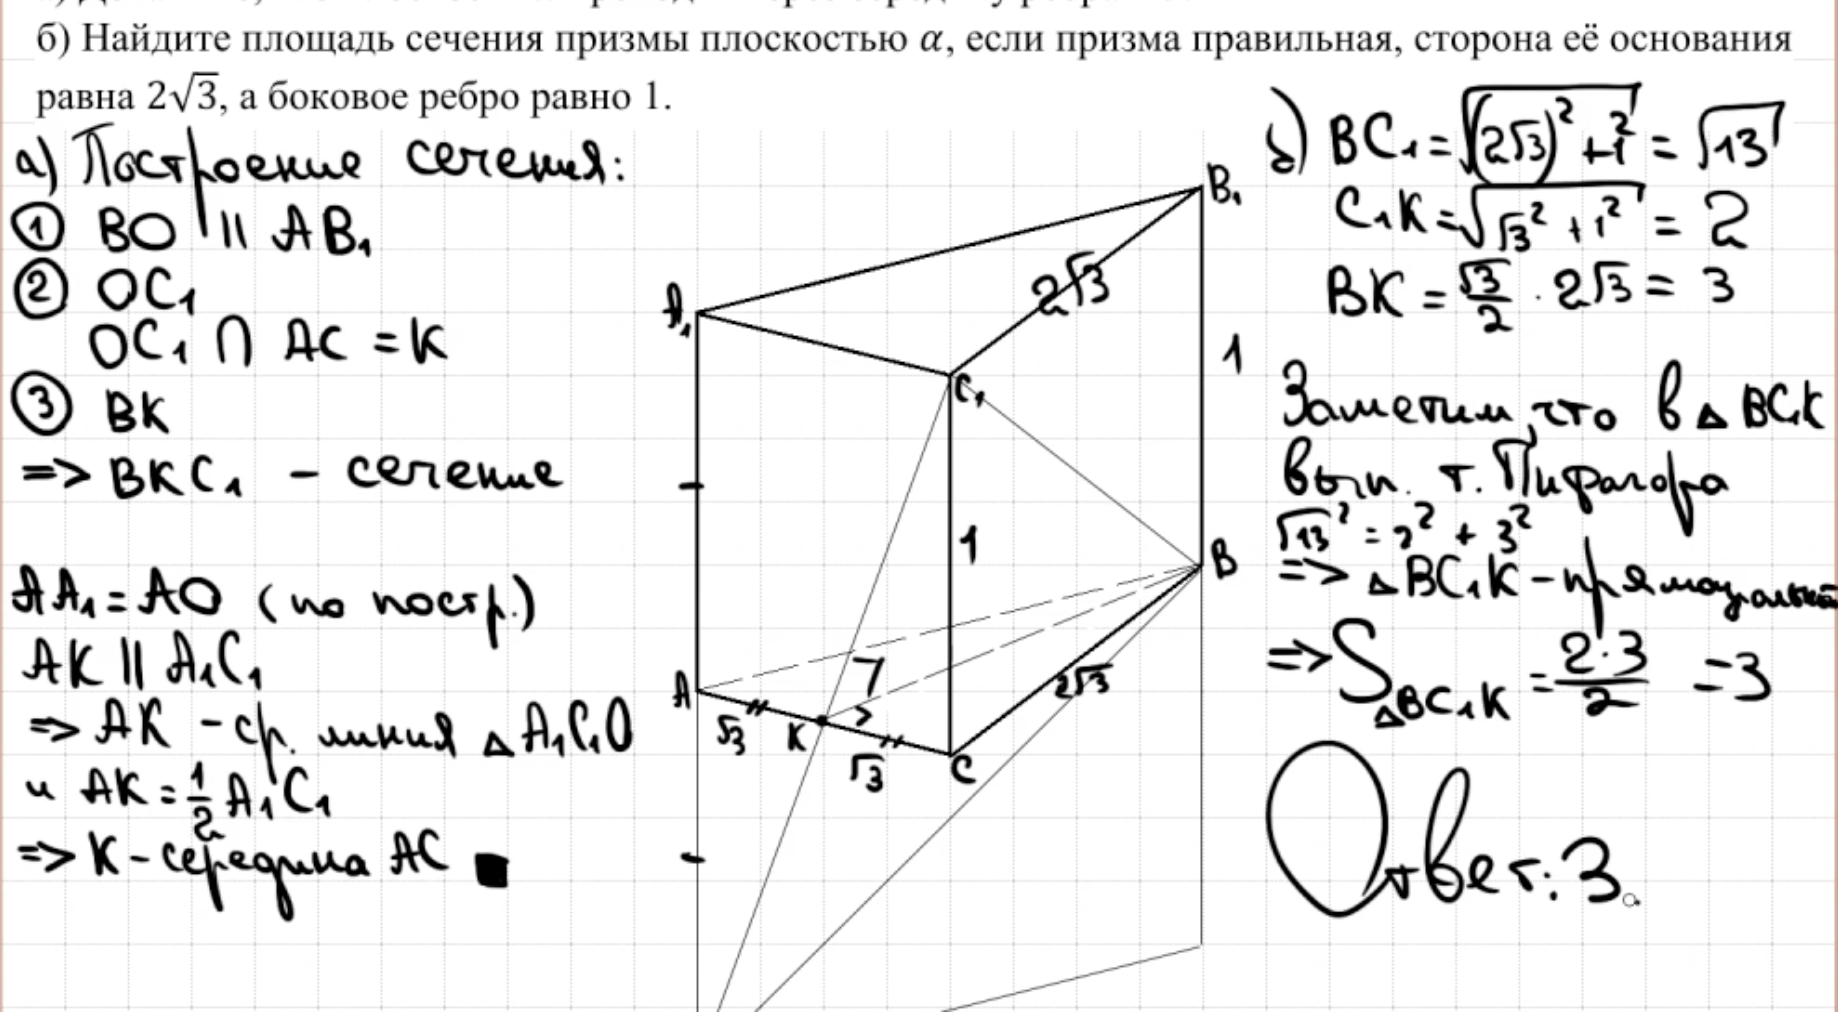 б) Найдите площадь сечения призмы плоскостью α, если призма правильная, сторона её основания
равна 2√3, а боковое ребро равно 1.
а) Построение сечения:
① BO || AB₁
② OC₁
OC₁ ∩ AC = K
③ BK
=> BKC₁ - сечение
AA₁ = AO (по постр.)
AK || A₁C₁
=> AK - ср. линия △ A₁C₁O
и AK = 1/2 A₁C₁
=> K - середина AC ■
A₁
B₁
2√3
C₁
1
1
B
A
√3
K
√3
C
2√3
б) BC₁ = √((2√3)² + 1²) = √13
C₁K = √(√3² + 1²) = 2
BK = √3/2 · 2√3 = 3
Заметим, что в △ BC₁K
вып. т. Пифагора
√13² = 2² + 3²
=> △ BC₁K - прямоугольный
=> S△BC₁K = 2·3/2 = 3
Ответ: 3.